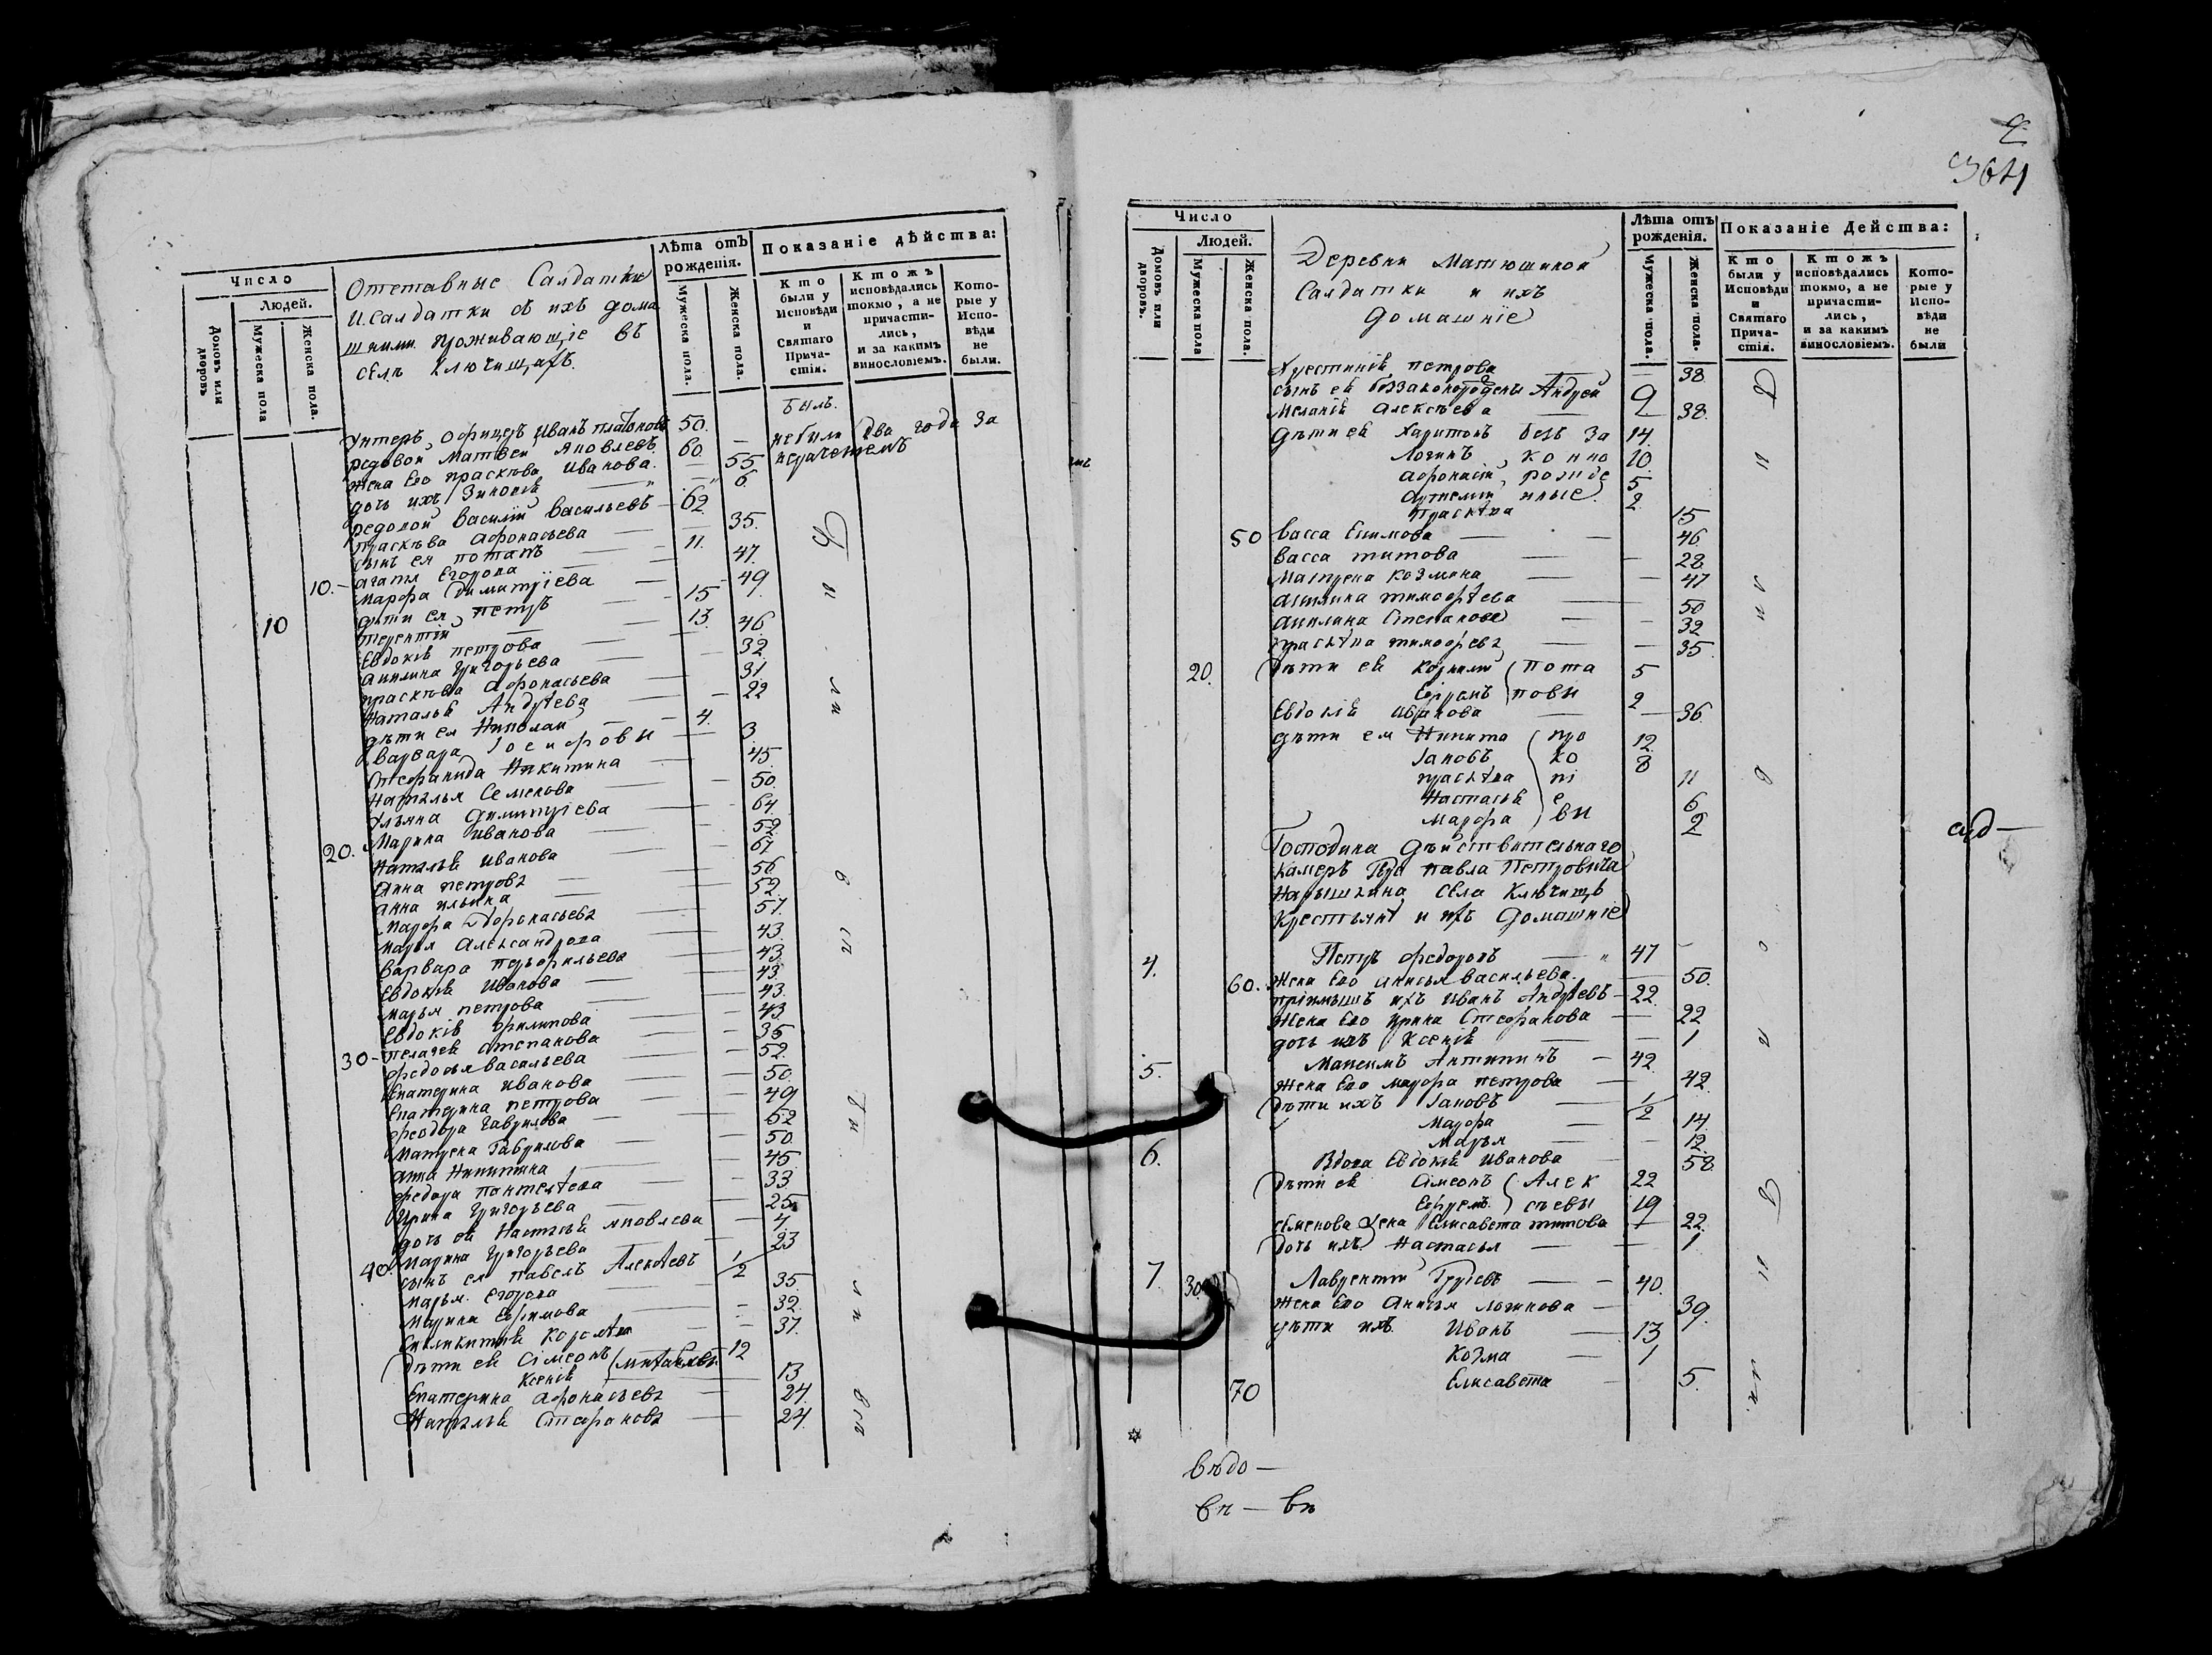 Число
Людей.
Домовъ или дворовъ
Мужеска пола
Женска пола.
Отставные Салдаты
и Салдатки съ ихъ дома
шними проживающіе въ
селѣ Ключищахъ.
Лѣта отъ рожденія.
Мужеска пола.
Женска пола.
Показаніе дѣйства:
Кто были у Исповѣди и Святаго Прича-стія.
Ктожъ исповѣдались токмо, а не причасти-лись, и за какимъ винословіемъ.
Кото-рые у Испо-вѣди не были.
Унтеръ, офицеръ Иванъ Платоновъ 50. былъ.
редовой Матвей Яковлевъ 60. небыли два года за
жена Его Прасковья Иванова. 55
дочь ихъ Зиновья 6.
редовой Василий Васильевъ 62
Праскѣва Афонасьева 35.
сынъ ея Потапъ 11.
10. Агапья Егорова 47.
Марфа Димитріева 49
дѣти ея Петръ 15
10 Терентій 13.
Евдокія Петрова 46.
Акилина Григорьева 32
Праскѣва Афонасьева 31.
Наталья Андреева 22
дѣти ея Николай 4.
Варвара Іосифовы 3
Стефанида Никитина 45.
Наталья Семенова 50.
Ульяна Димитріева 64
20. Марина Иванова 52
Наталья Иванова 67
Анна Петрова 56
Анна Ильина 52.
Марфа Афонасьева 57.
Марья Александрова 43.
Варвара Перфильева 43
Евдокія Иванова 43
Марья Петрова 43.
Евдокія Филипова 43
30 Пелагея Степанова 35
Федосья Васильева 52.
Екатерина Иванова 50.
Екатерина Петрова 49
Феодора Гаврилова 52
Матрена Гаврилова 50.
Анна Никитина 45
Федора Пантелѣева 33
Ирина Григорьева 25
дочь ей Настасья Яковлева 4
40. Марина Григорьева 23
сынъ ея Павелъ Алексѣевъ 1/2
Марья Егорова 35
Марина Ефимова 32.
37.
дѣти ей Сімеонъ 12
Ксенія 13
Екатерина Афонасьева 24
Наталья Стефанова 24.
364
Число
Людей.
Домовъ или дворовъ.
Мужеска пола
Женска пола.
Деревни Матюшиной
Салдатки и ихъ
домашніе
Лѣта отъ рожденія.
Мужеска пола.
Женска пола.
Показаніе Действа:
Кто были у Исповѣди и Святаго Прича-стія.
Ктожъ исповѣдались токмо, а не причасти-лись, и за какимъ винословіемъ.
Кото-рые у Испо-вѣди не были
Хрестинія Петрова 38
сынъ ей Андрей 9
Меланія Алексѣева 38.
дѣти ей Харитонъ без за 14.
Логинъ конно 10
Афонасій рожде 5
Артемій нные 2
Праскѣва 15
50 Васса Ефимова 46
Васса Титова 28
Матрена Козмина 47
Акилина Тимофѣева 50
Акилина Степанова 32
Праскѣва Тимофѣева 35
20. дѣти ей Пота 5
повы 2
Евдокія Иванова 36.
дѣти ея Никита про 12.
Іаковъ ко 8
Праскѣва пі 11
Настасья е 6
Марфа вы 2
Господина дѣйствительнаго
Камеръ Павла Петровича
Нарышкина Села Ключищъ
Крестьяне и ихъ домашніе
4. Петръ Федоровъ 47
60. жена Его Анисья Васильева 50.
пріимышъ ихъ Иванъ Андреевъ 22.
жена Его Ирина Стефанова 22
дочь ихъ Ксенія 1
5. Максимъ Антипинъ 42.
жена Его Марфа Петрова 42.
дѣти ихъ Іаковъ 1/2
Марфа 14.
Марья 12.
6. Вдова Евдокія Иванова 58
дѣти ей Сімеонъ Алек 22
Ефремъ сѣевы 19
Семенова жена Елисавета Титова 22.
дочь ихъ Настасья 1
7. 30 Лаврентій 40.
жена Его Анисья Логинова 39.
дѣти ихъ Иванъ 13
Козма 1
70 Елисавета 5.